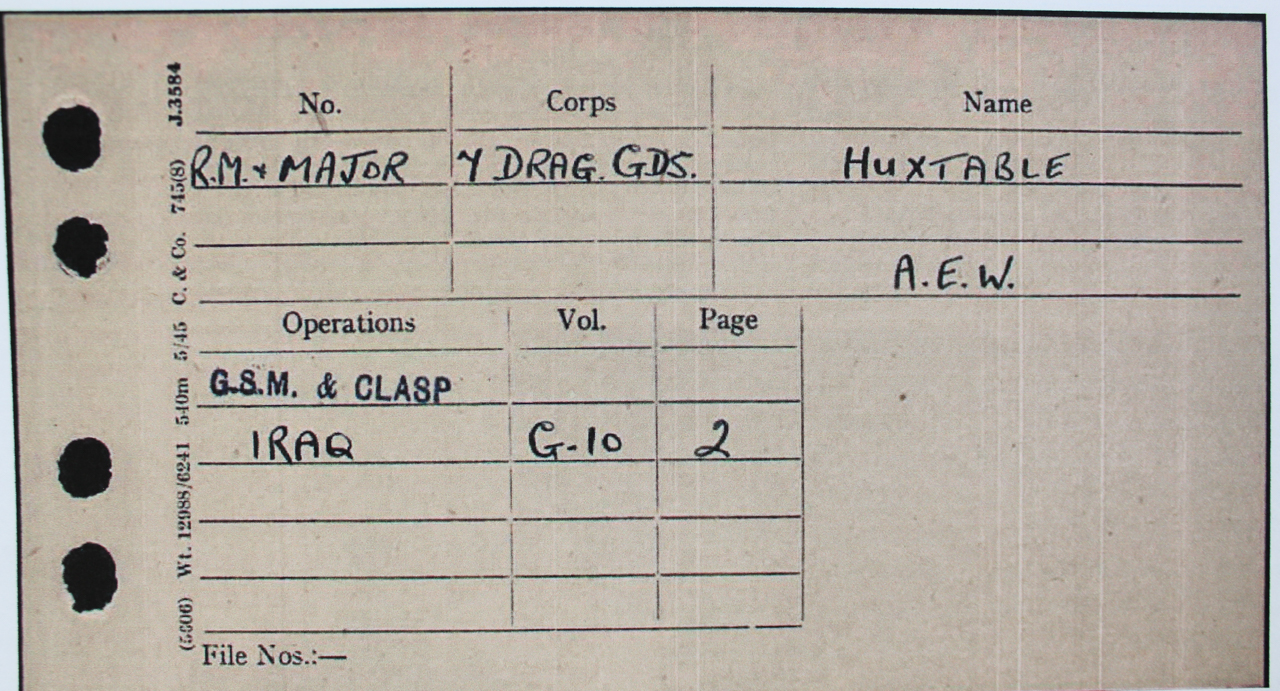 No. Corps Name
R.M. & MAJOR 7 DRAG. GDS. HUXTABLE
A.E.W.
Operations Vol. Page
G.S.M. & CLASP
IRAQ G-10 2
File Nos.:—
(5606) Wt. 12988/6241 540m 5/45 C. & Co. 745(8) J.3584